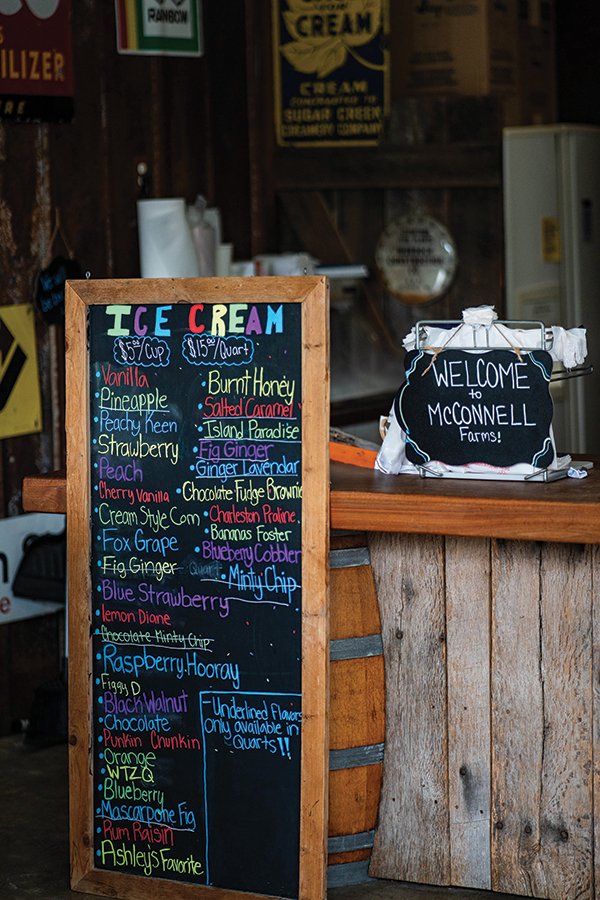 RAINBOW
ILIZER
RE
CREAM
CREAM
CONTRACTED TO
SUGAR CREEK
CREAMERY COMPANY
ICE CREAM
$5.00/Cup $15.00/Quart
Vanilla
Pineapple
Peachy Keen
Strawberry
Peach
Cherry Vanilla
Cream Style Corn
Fox Grape
Fig Ginger Quart
Blue Strawberry
lemon Diane
Chocolate Minty Chip
Raspberry Hooray
Figgy D
Black Walnut
Chocolate
Punkin Chunkin
Orange
WTZQ
Blueberry
Mascarpone Fig
Rum Raisin
Ashley's Favorite
Burnt Honey
Salted Caramel
Island Paradise
Fig Ginger
Ginger Lavendar
Chocolate Fudge Brownie
Charleston Praline
Bananas Foster
Blueberry Cobbler
Minty Chip
-Underlined Flavors
only available in
Quarts!!
WELCOME
to
McCONNELL
Farms!